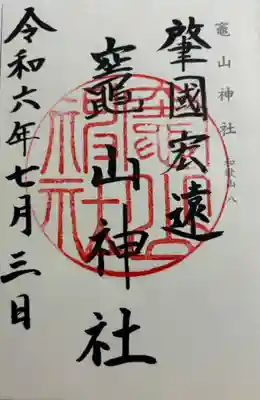 竈山神社
和歌山 八
肇國宏遠
竈山神社
令和六年七月三日